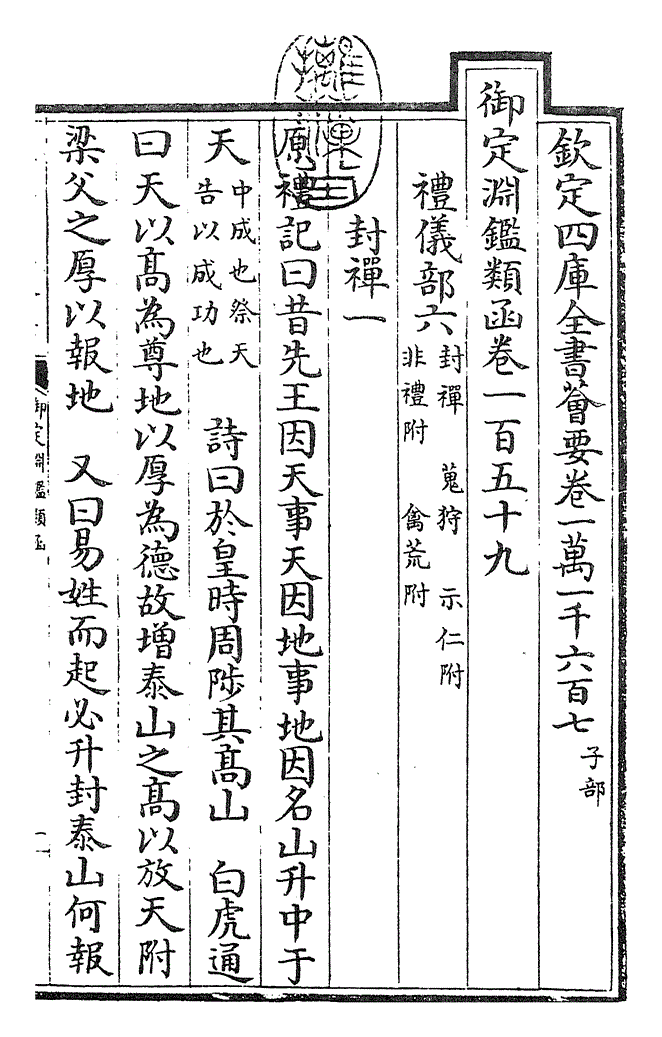 欽定四庫全書薈要卷一萬一千六百七 子部
御定淵鑑類函卷一百五十九
禮儀部六 封禪 蒐狩 示仁附 非禮附 禽荒附
封禪一
原禮記曰昔先王因天事天因地事地因名山升中于
天 中成也祭天告以成功也 詩曰於皇時周陟其髙山 白虎通
曰天以髙為尊地以厚為德故增泰山之髙以放天附
梁父之厚以報地 又曰易姓而起必升封泰山何報
御定淵鑑類函
一